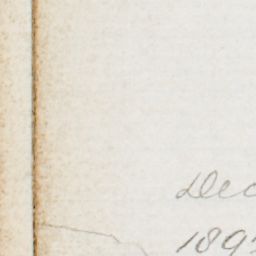 Dec
189